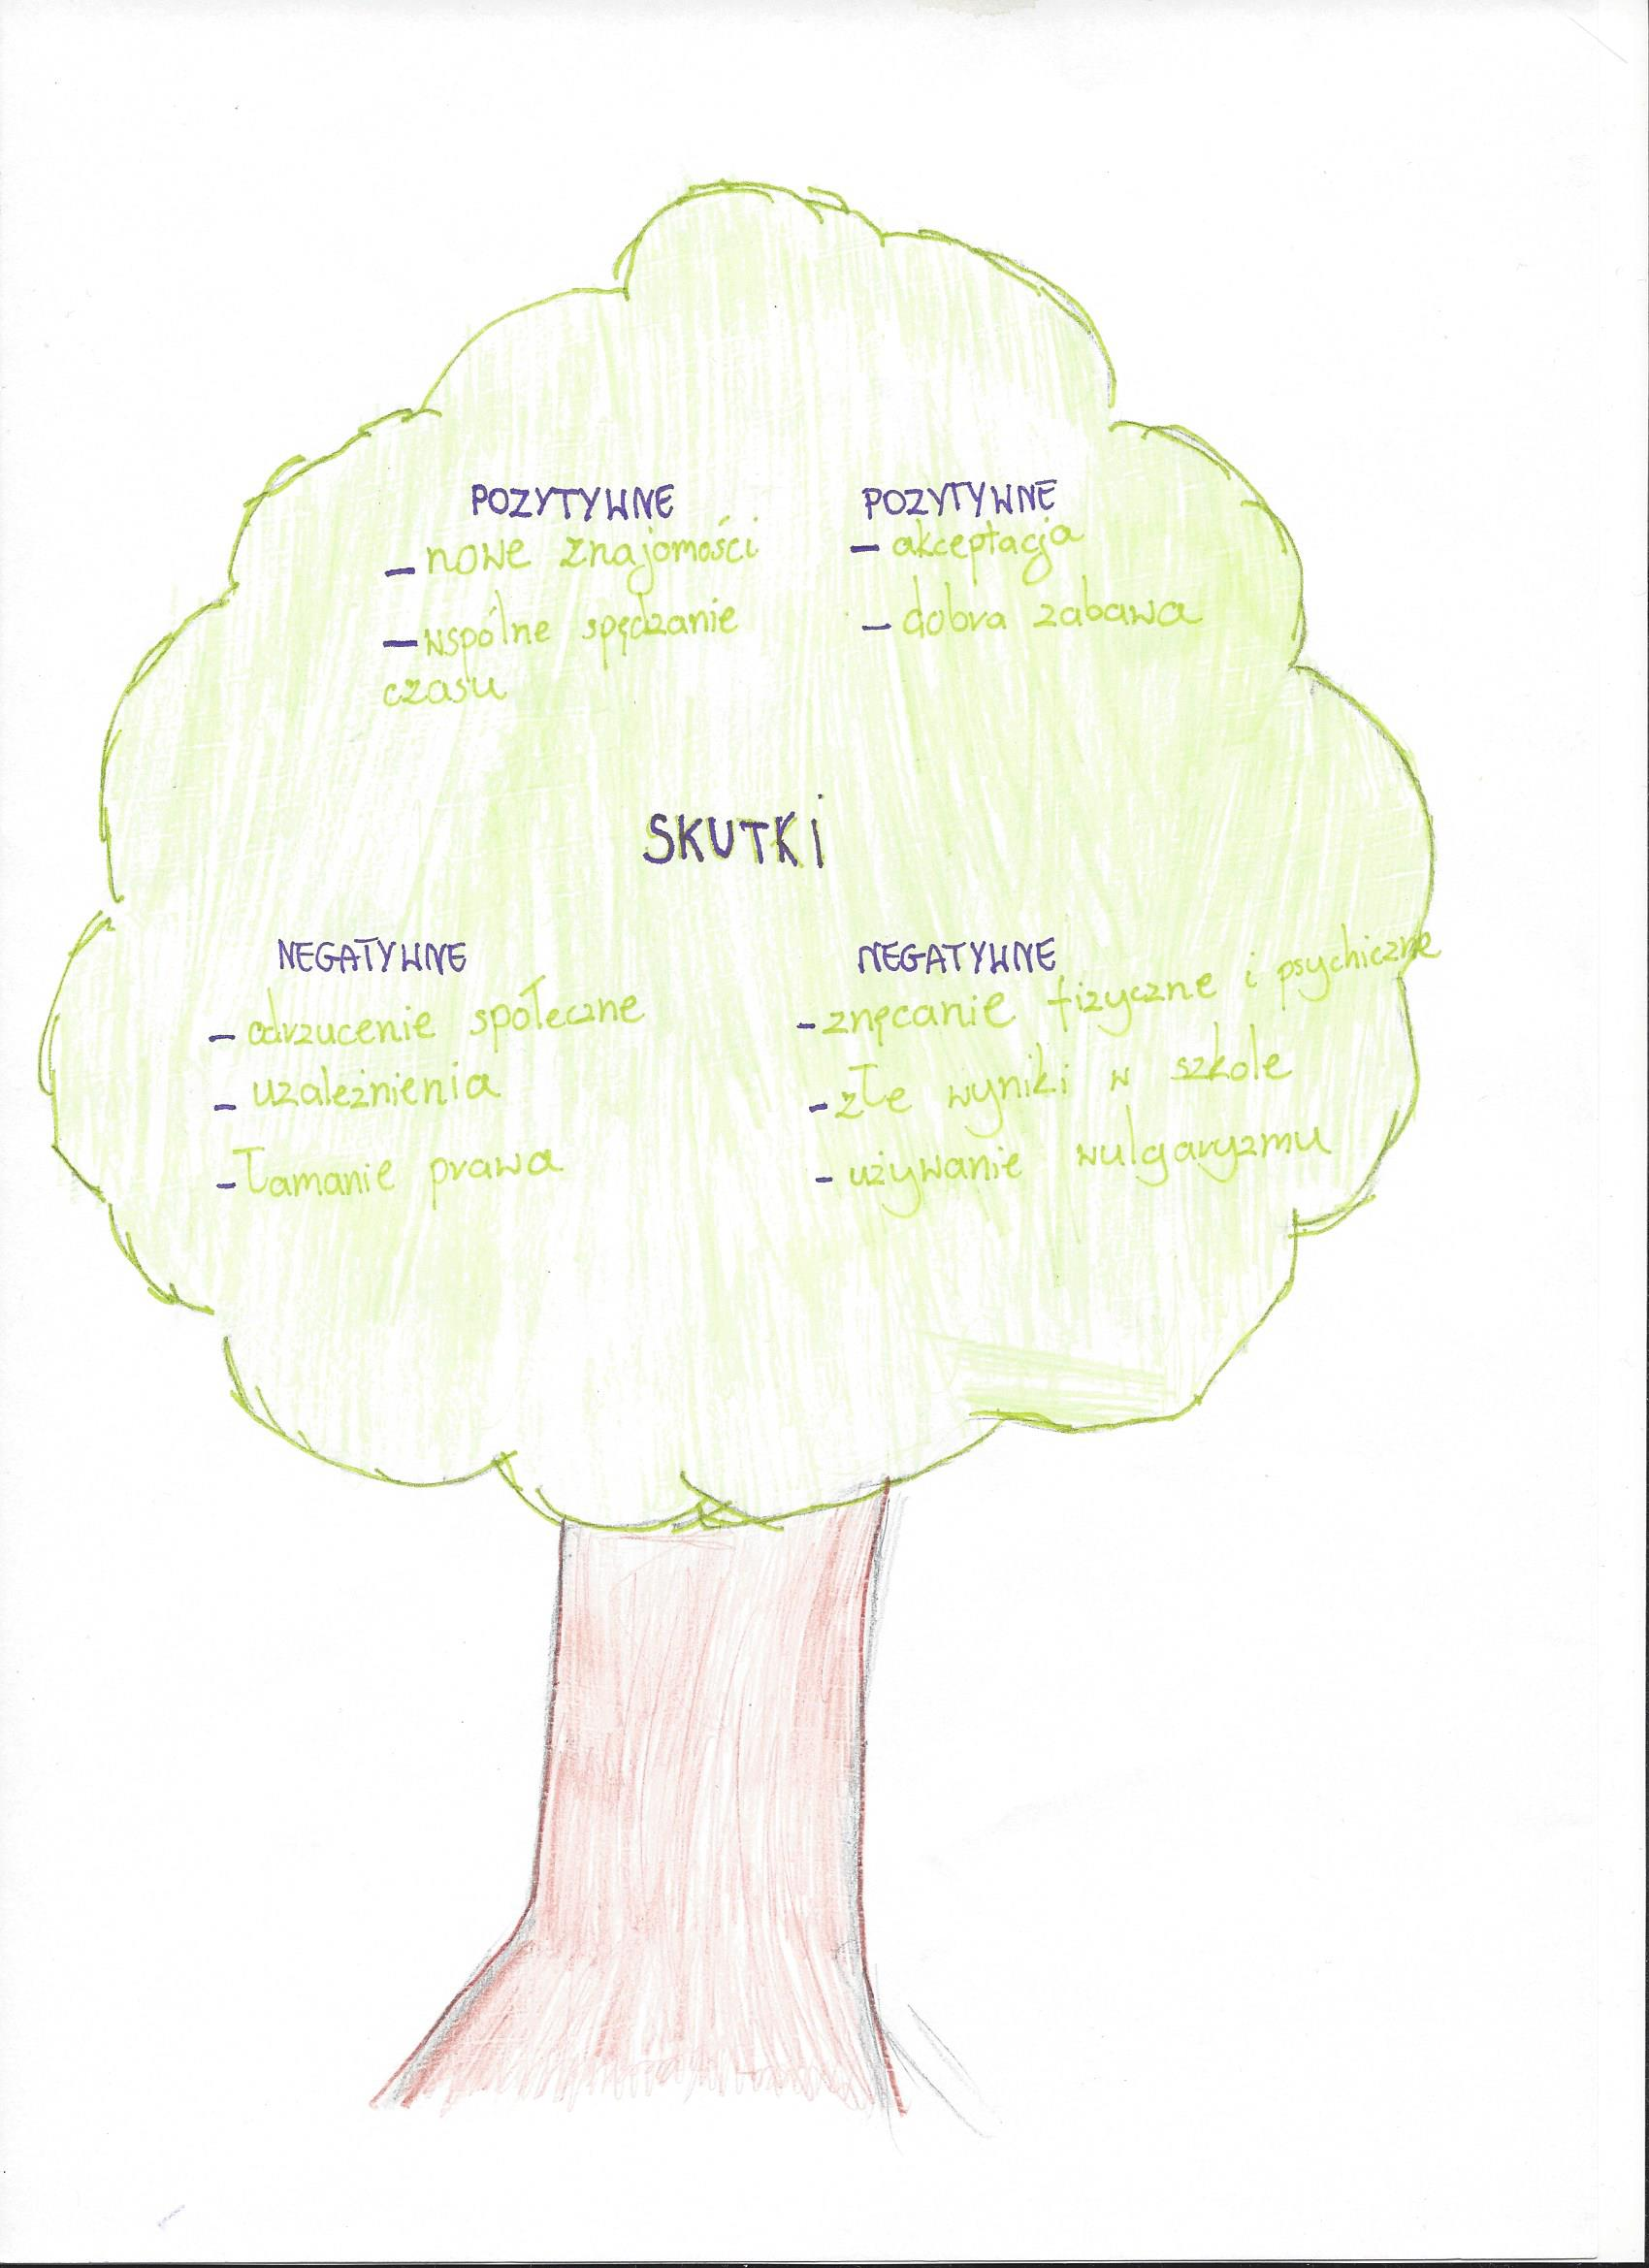 POZYTYWNE
- nowe znajomości
- wspólne spędzanie
czasu
POZYTYWNE
- akceptacja
- dobra zabawa
SKUTKI
NEGATYWNE
- odrzucenie społeczne
- uzależnienia
- łamanie prawa
NEGATYWNE
- znęcanie fizyczne i psychiczne
- złe wyniki w szkole
- używanie wulgaryzmu